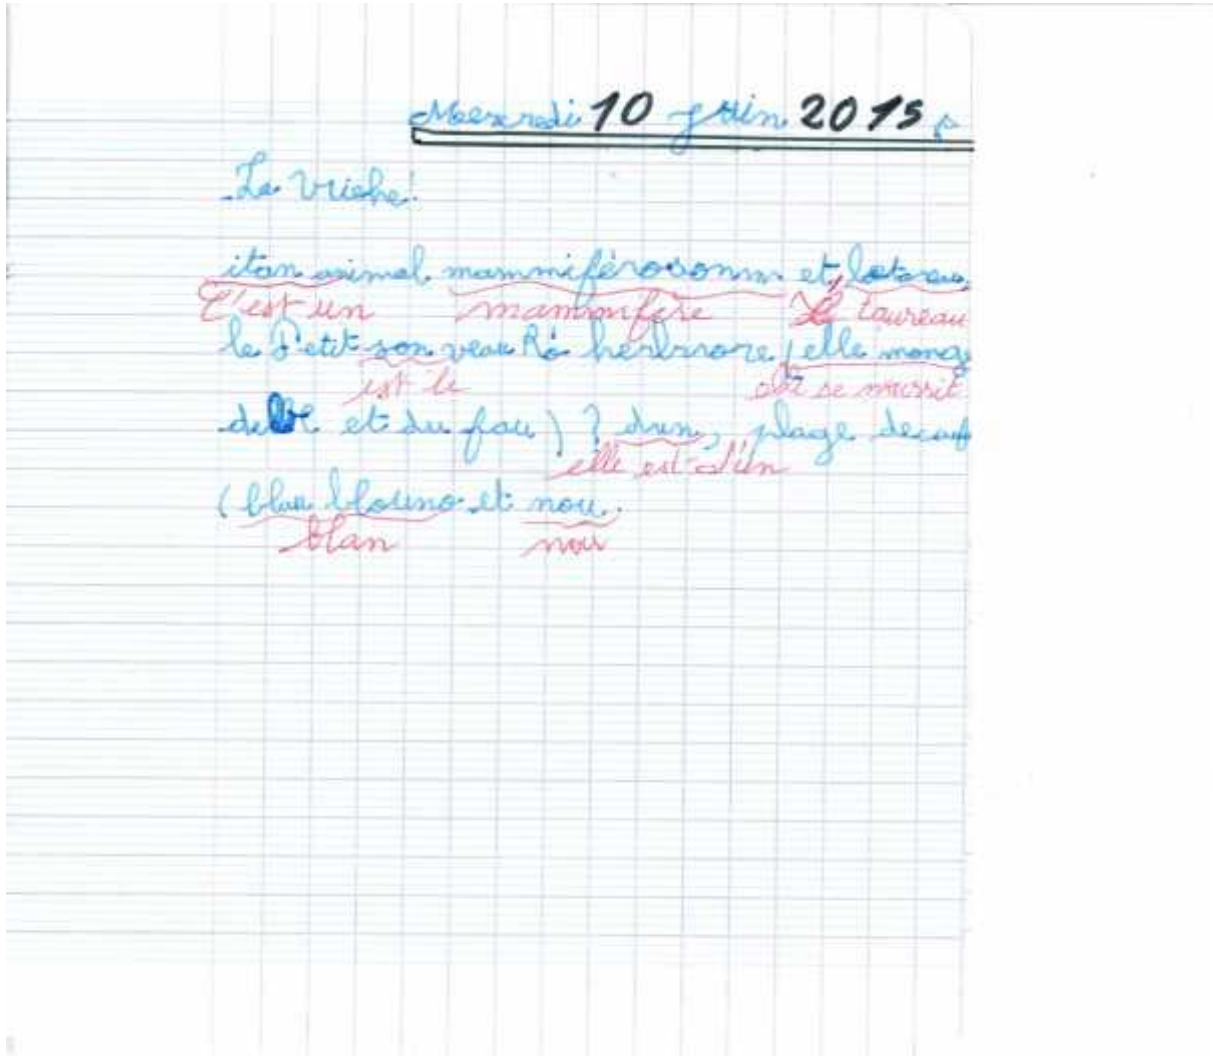 Mercredi 10 juin 2015
La Vriehe
itan animal mammiférosonm et lotareau
C'est un mammifère Le taureau
le Petit son veau Ro herbivore (elle mang
est le elle se nourrit
de et du fou) dun plage decouf
elle est d'un
(blan blouno et nou.
blan noir